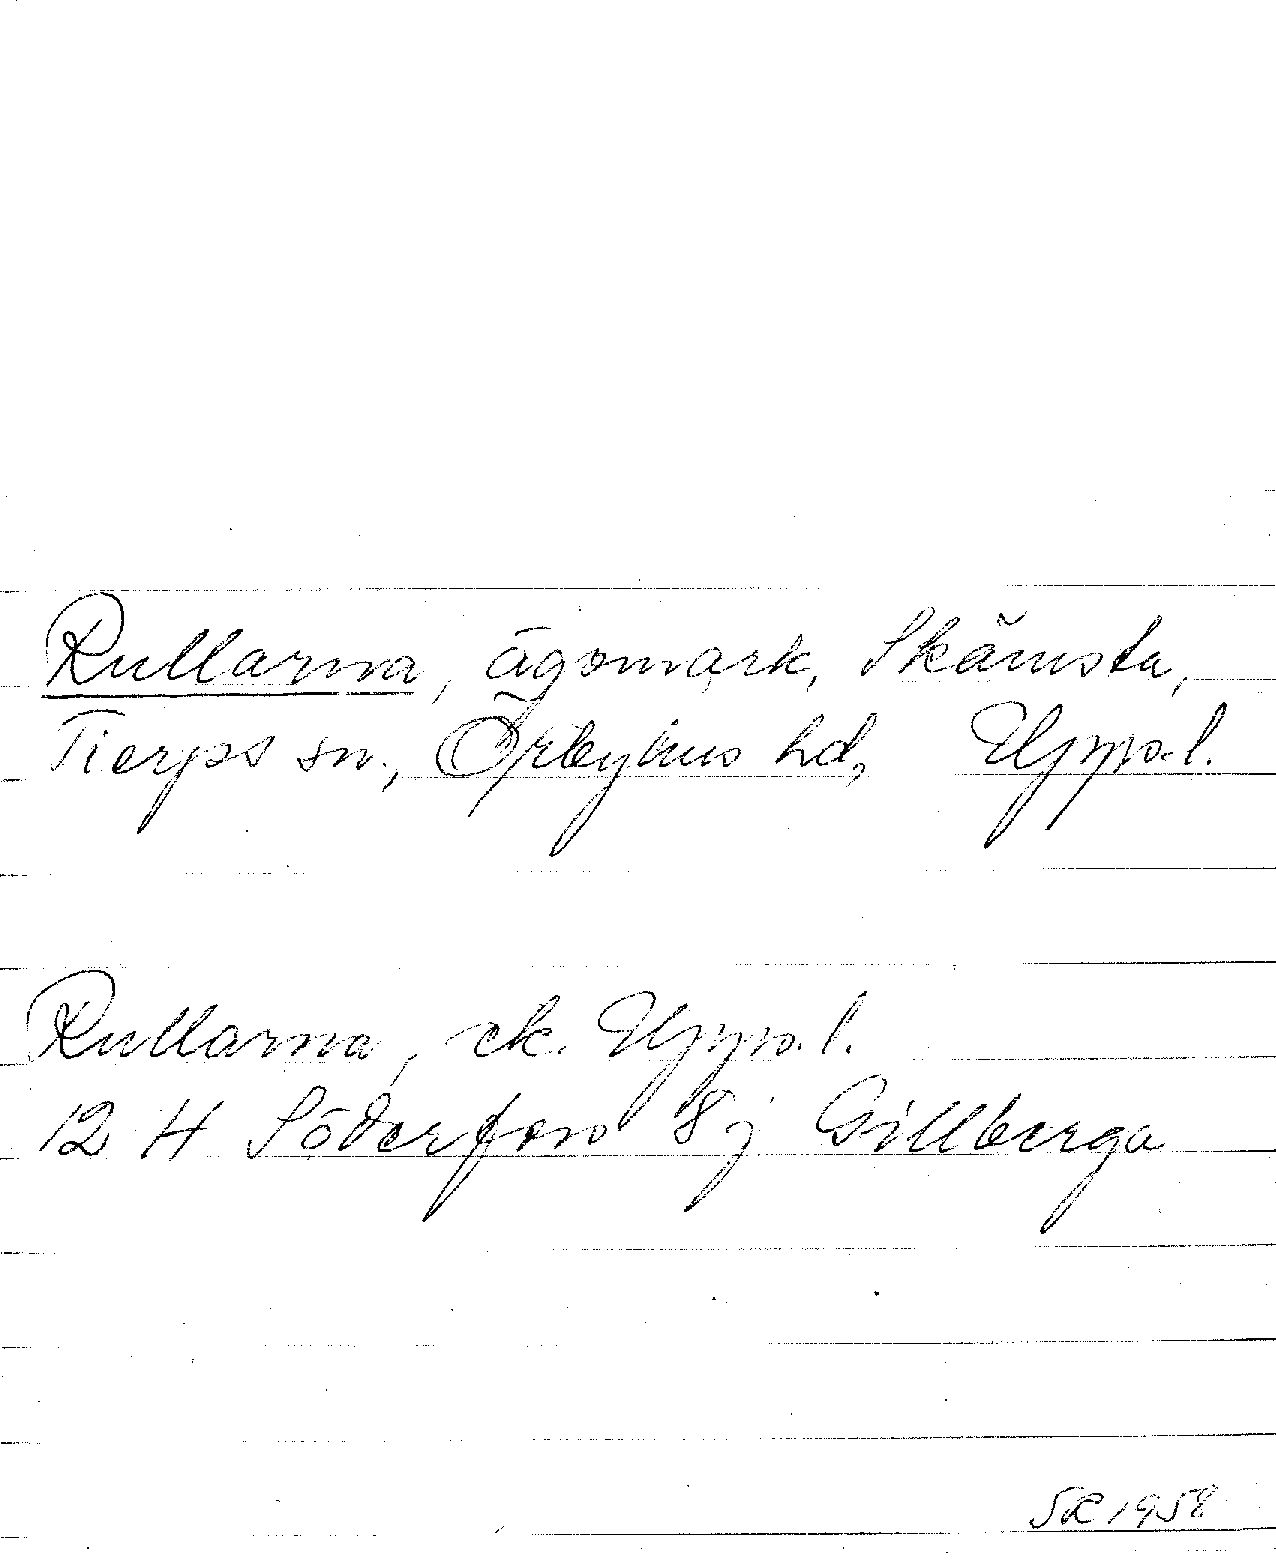 Rullarna, ägomark, Skämsta,
Tierps sn., Örbyhus hd, Uppl.
Rullarna, ek. Uppl.
12 H Söderfors 8j Gillberga
SR 1958